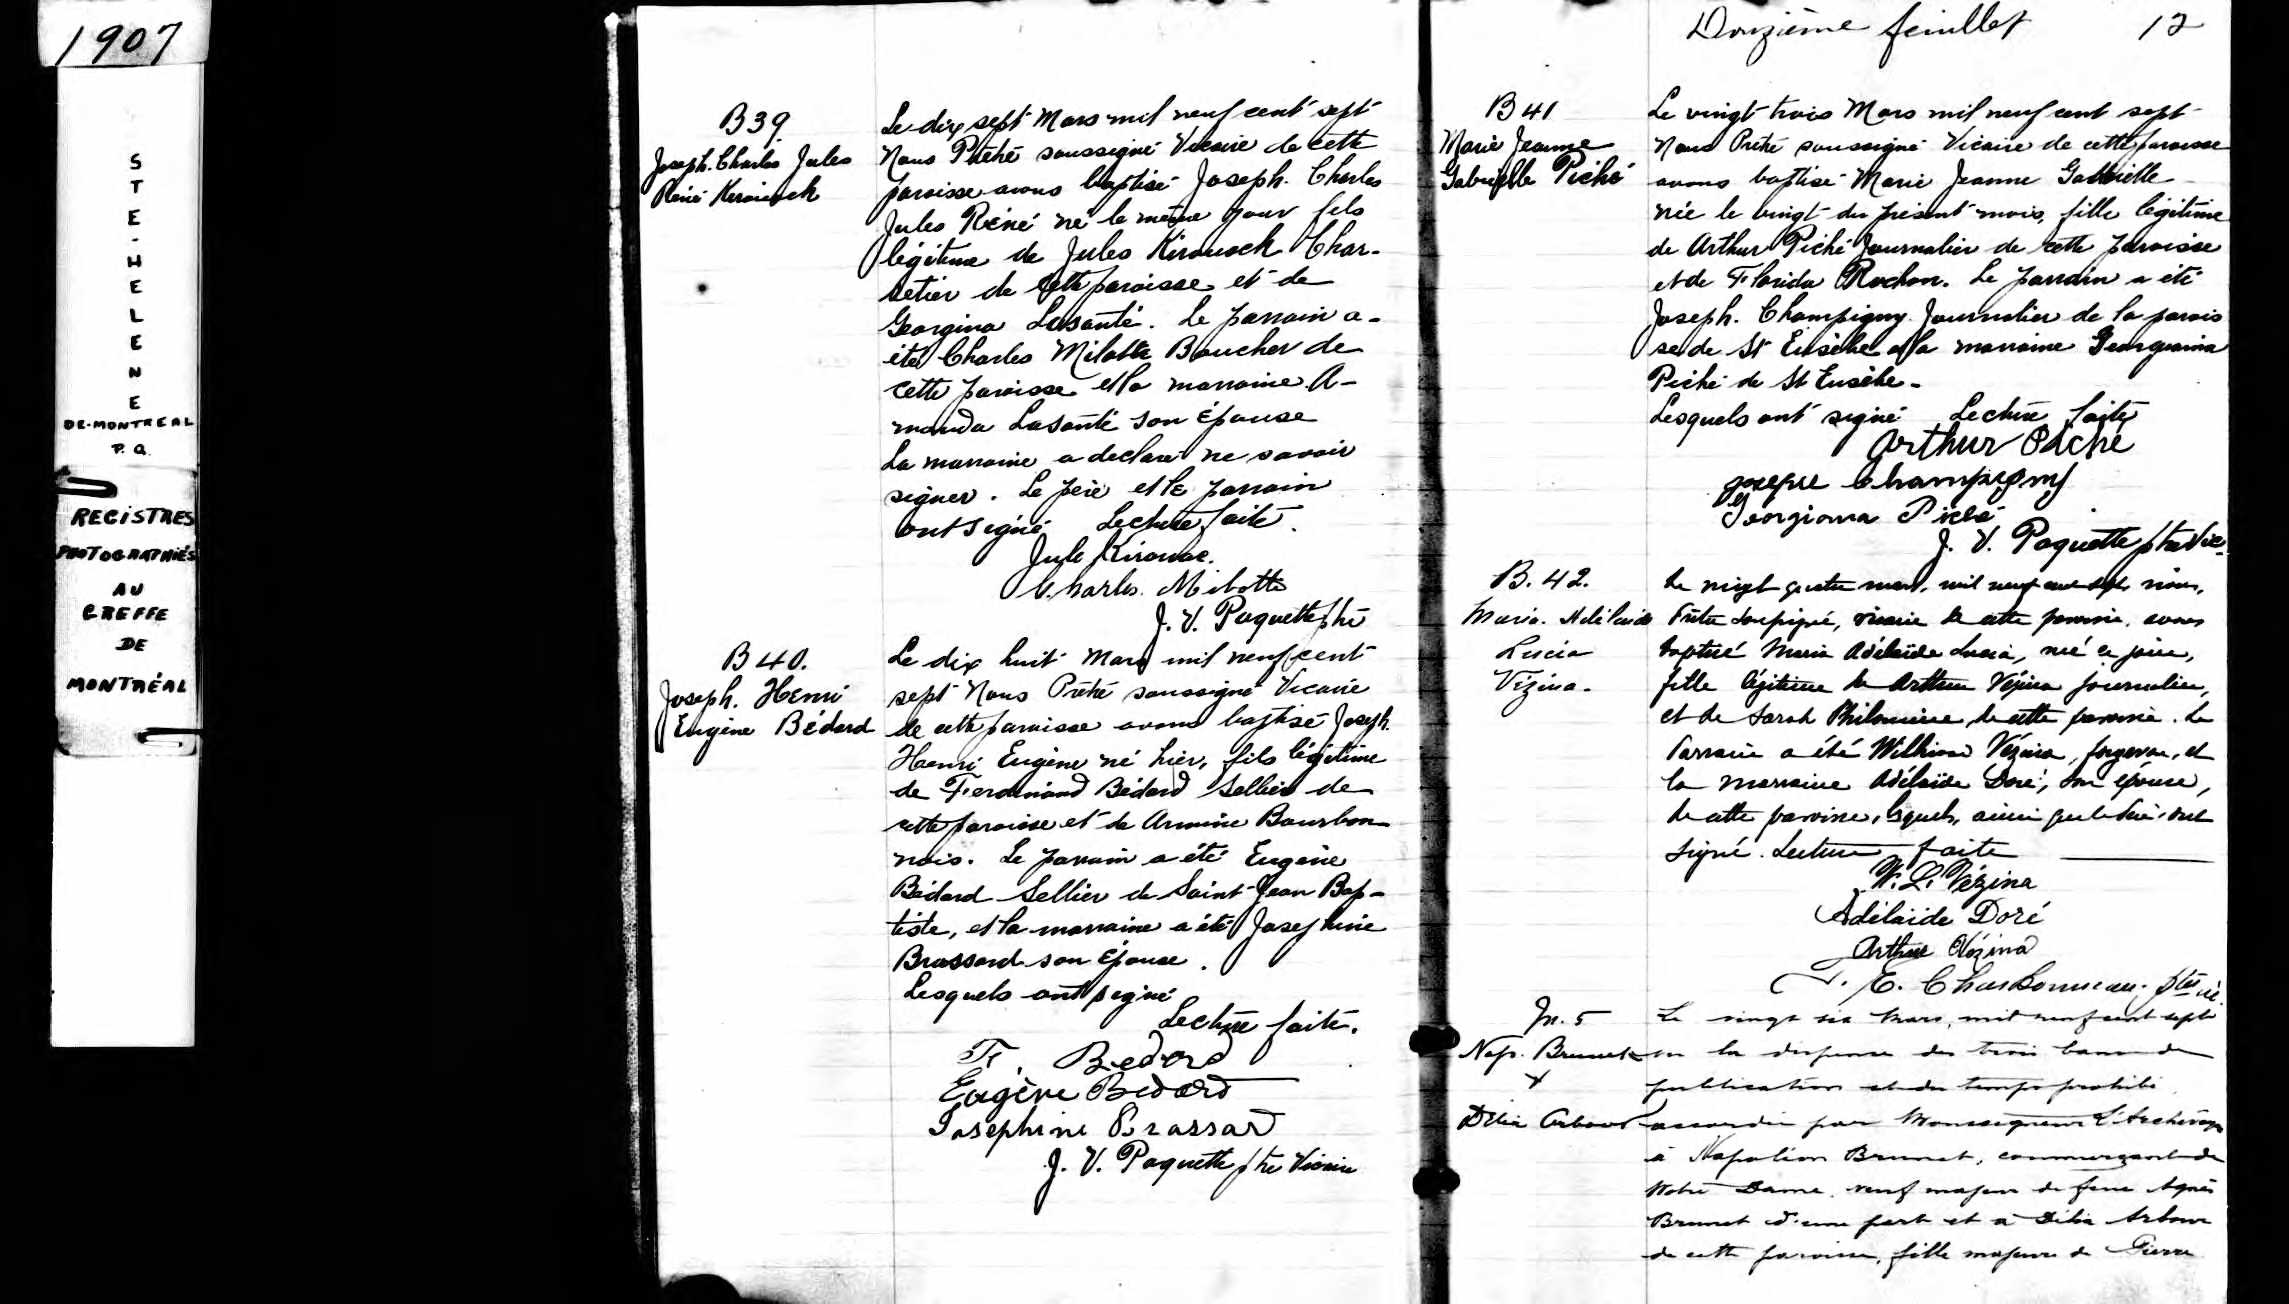 1907
STE-HELENE
DE-MONTREAL
P.Q.
REGISTRES
PHOTOGRAPHIÉS
AU
GREFFE
DE
MONTRÉAL
B 39
Joseph. Charles Jules
Réné Kirouack
Le dix sept Mars mil neuf cent sept
Nous Prêtre soussigné Vicaire de cette
paroisse avons baptisé Joseph. Charles
Jules Réné né le même jour fils
légitime de Jules Kirouack Char-
retier de cette paroisse et de
Georgina Lasanté. Le parrain a-
été Charles Milotte Boucher de
cette paroisse et la marraine A-
manda Lasanté son Épouse
La marraine a declaré ne savoir
signer. Le père et le parrain
ont signé Lecture faite.
Jule Kirouac.
Charles. Milotte
J. V. Paquette ptre
B 40.
Joseph. Henri
Eugène Bédard
Le dix huit Mars mil neuf cent
sept Nous Prêtre soussigné Vicaire
de cette paroisse avons baptisé Joseph.
Henri Eugène né hier, fils légitime
de Ferdinand Bédard Sellier de
cette paroisse et de Armine Bourbon-
nais. Le parrain a été Eugène
Bédard Sellier de Saint-Jean Bap-
tiste, et la marraine a été Josephine
Brassard son Épouse.
Lesquels ont signé
Lecture faite.
F. Bedard
Eugène Bedard
Josephine Brassard
J. V. Paquette ptre Vicaire
Douzième feuillet 12
B 41
Marie Jeanne
Gabrielle Piché
Le vingt trois Mars mil neuf cent sept
Nous Prêtre soussigné Vicaire de cette paroisse
avons baptisé Marie Jeanne Gabrielle
née le vingt du présent mois, fille légitime
de Arthur Piché Journalier de cette paroisse
et de Florida Rochon. Le parrain a été
Joseph. Champigny Journalier de la parois
se de St Eusèbe et la marraine Georgianna
Piché de St Eusèbe-
Lesquels ont signé Lecture faite
Arthur Piché
Joseph Champigny
Georgiana Piché
J. V. Paquette ptre Vic.
B. 42.
Maria. Adélaïde
Lucia
Vézina.
Le vingt quatre mars, mil neuf cent sept, nous,
Prêtre soussigné, vicaire de cette paroisse, avons
baptisé Maria Adélaïde Lucia, née ce jour,
fille légitime de Arthur Vézina journalier,
et de Sarah Philomène de cette paroisse. Le
Parrain a été William Vézina, forgeron, et
la Marraine Adélaïde Doré, son épouse,
de cette paroisse, lesquels, ainsi que le père, ont
signé. Lecture faite
W. L. Vézina
Adélaïde Doré
Arthur Vézina
E. Charbonneau. ptre vic.
M. 5
Nap. Brunet
&
Délia Arbour
Le vingt six Mars, mil neuf cent sept
vu la dispense des trois bans de
publication et du temps prohibé
accordée par Monseigneur L'Archevêque
à Napoléon Brunet, commerçant de
Notre Dame, veuf majeur de feue Agnès
Brunet d'une part et à Délia Arbour
de cette paroisse, fille majeure de Pierre